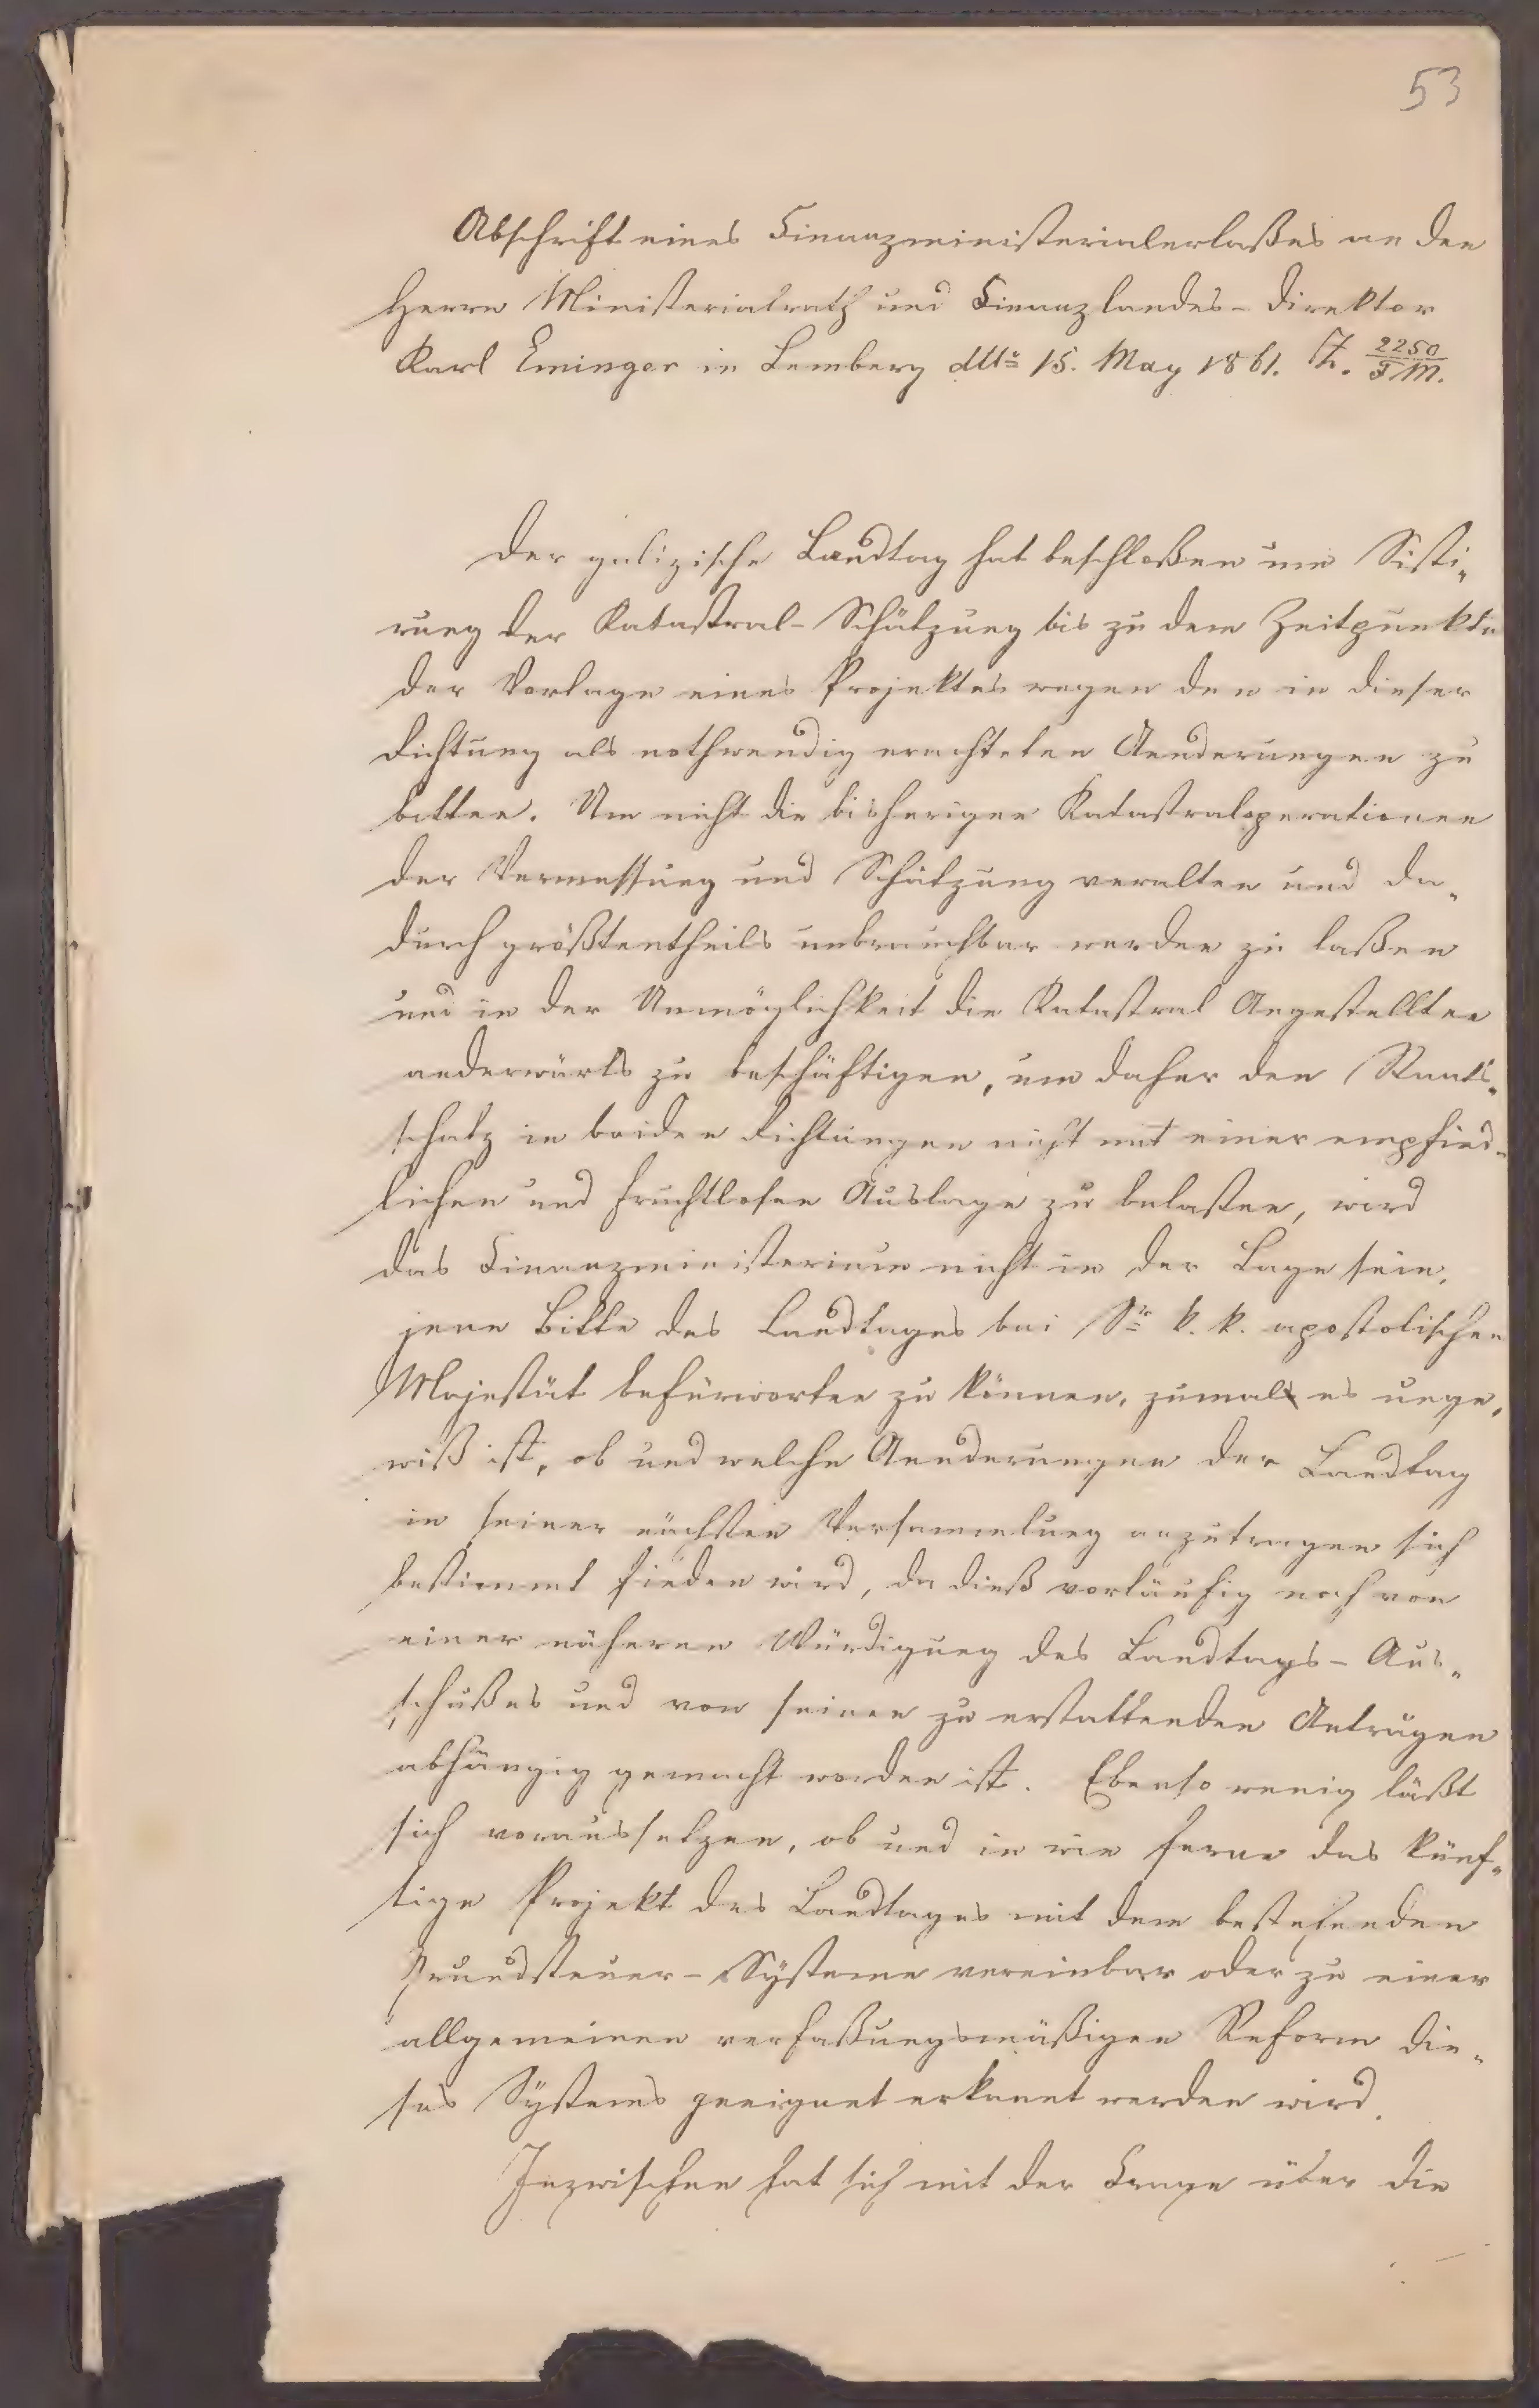 53
Abschrift eines Finanzministerialerlaßes an den
Herrn Ministerialrath und Finanzlandes-Direktor
Karl Eminger in Lemberg ddto 15. May 1861. Z. 2250/FM.
Der galizische Landtag hat beschloßen um Sisti-
rung der Katastral-Schätzung bis zu dem Zeitpunkte
der Vorlage eines Projektes wegen den in dieser
Richtung als nothwendig erachteten Aenderungen zu
bitten. Um nicht die bisherigen Katastraloperationen
der Vermessung und Schätzung veralten und da-
durch größtentheils unbrauchbar werden zu laßen
und in der Unmöglichkeit die Katastral Angestellten
anderwärts zu beschäftigen, um daher den Staats-
schatz in beiden Richtungen nicht mit einer empfind-
lichen und fruchtlosen Auslage zu belasten, wird
das Finanzministerium nicht in der Lage sein,
jene Bitte des Landtages bei Sr k. k. apostolischen
Majestät befürworten zu können, zumal es unge-
wiß ist, ob und welche Aenderungen der Landtag
in seiner nächsten Versammlung anzutragen sich
bestimmt finden wird, da dieß vorläufig noch von
einer näheren Würdigung des Landtags-Aus-
schußes und von seinen zu erstattenden Anträgen
abhängig gemacht worden ist. Ebenso wenig läßt
sich voraussetzen, ob und in wie ferne das künf-
tige Projekt des Landtages mit dem bestehenden
Grundsteuer-Systeme vereinbar oder zu einer
allgemeinen verfaßungsmäßigen Reform die-
ses Systems geeignet erkannt werden wird.
Inzwischen hat sich mit der Frage über die